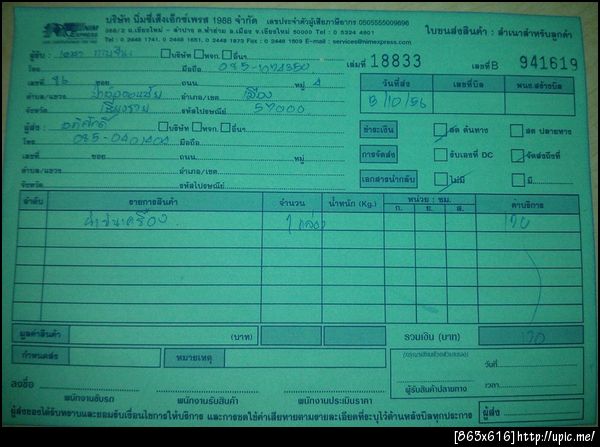 NIM EXPRESS
บริษัท นิ่มซี่เส็งเอ็กซ์เพรส 1988 จำกัด เลขประจำตัวผู้เสียภาษีอากร 0505555009696
ใบขนส่งสินค้า : สำเนาสำหรับลูกค้า
Tel : 0 2448 1741, 0 2448 1651, 0 2448 1673 Fax : 0 2448 1609 E-mail : services@nimexpress.com
ผู้รับ : บริษัท หจก. อื่นๆ
เล่มที่ 18833 เลขที่ B 941619
โทร. มือถือ 085-
เลขที่ 96 ซอย ถนน หมู่ 4
วันที่ส่ง เลขที่บิล พนง.สร้างบิล
ตำบล/แขวง อำเภอ/เขต เมือง
8/10/56
จังหวัด เชียงราย รหัสไปรษณีย์ 57000
ผู้ส่ง : อภิศักดิ์ บริษัท หจก. อื่นๆ
ชำระเงิน สด ต้นทาง สด ปลายทาง
โทร. 085-0401404 มือถือ
เลขที่ ซอย ถนน หมู่
การจัดส่ง รับเองที่ DC จัดส่งถึงที่
ตำบล/แขวง อำเภอ/เขต
เอกสารนำกลับ ไม่มี มี
จังหวัด รหัสไปรษณีย์
ลำดับ รายการสินค้า จำนวน น้ำหนัก (Kg.) หน่วย : ซม. ค่าบริการ
ก. ย. ส.
1 กล่อง 170
มูลค่าสินค้า (บาท) รวมเงิน (บาท) 170
กำหนดส่ง หมายเหตุ
วันที่
ลงชื่อ
เวลา
พนักงานขับรถ พนักงานรับสินค้า พนักงานประเมินราคา ผู้รับสินค้าปลายทาง
ผู้ส่งของได้รับทราบและยอมรับเงื่อนไขการให้บริการ และการชดใช้ค่าเสียหายตามรายละเอียดที่ระบุไว้ด้านหลังบิลทุกประการ ผู้ส่ง
[865x616]http://upic.me/